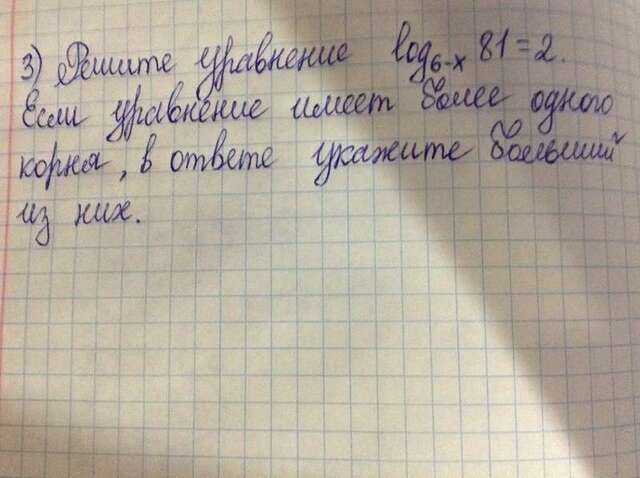 3) Решите уравнение log₆₋ₓ 81 = 2.
Если уравнение имеет более одного
корня, в ответе укажите больший
из них.